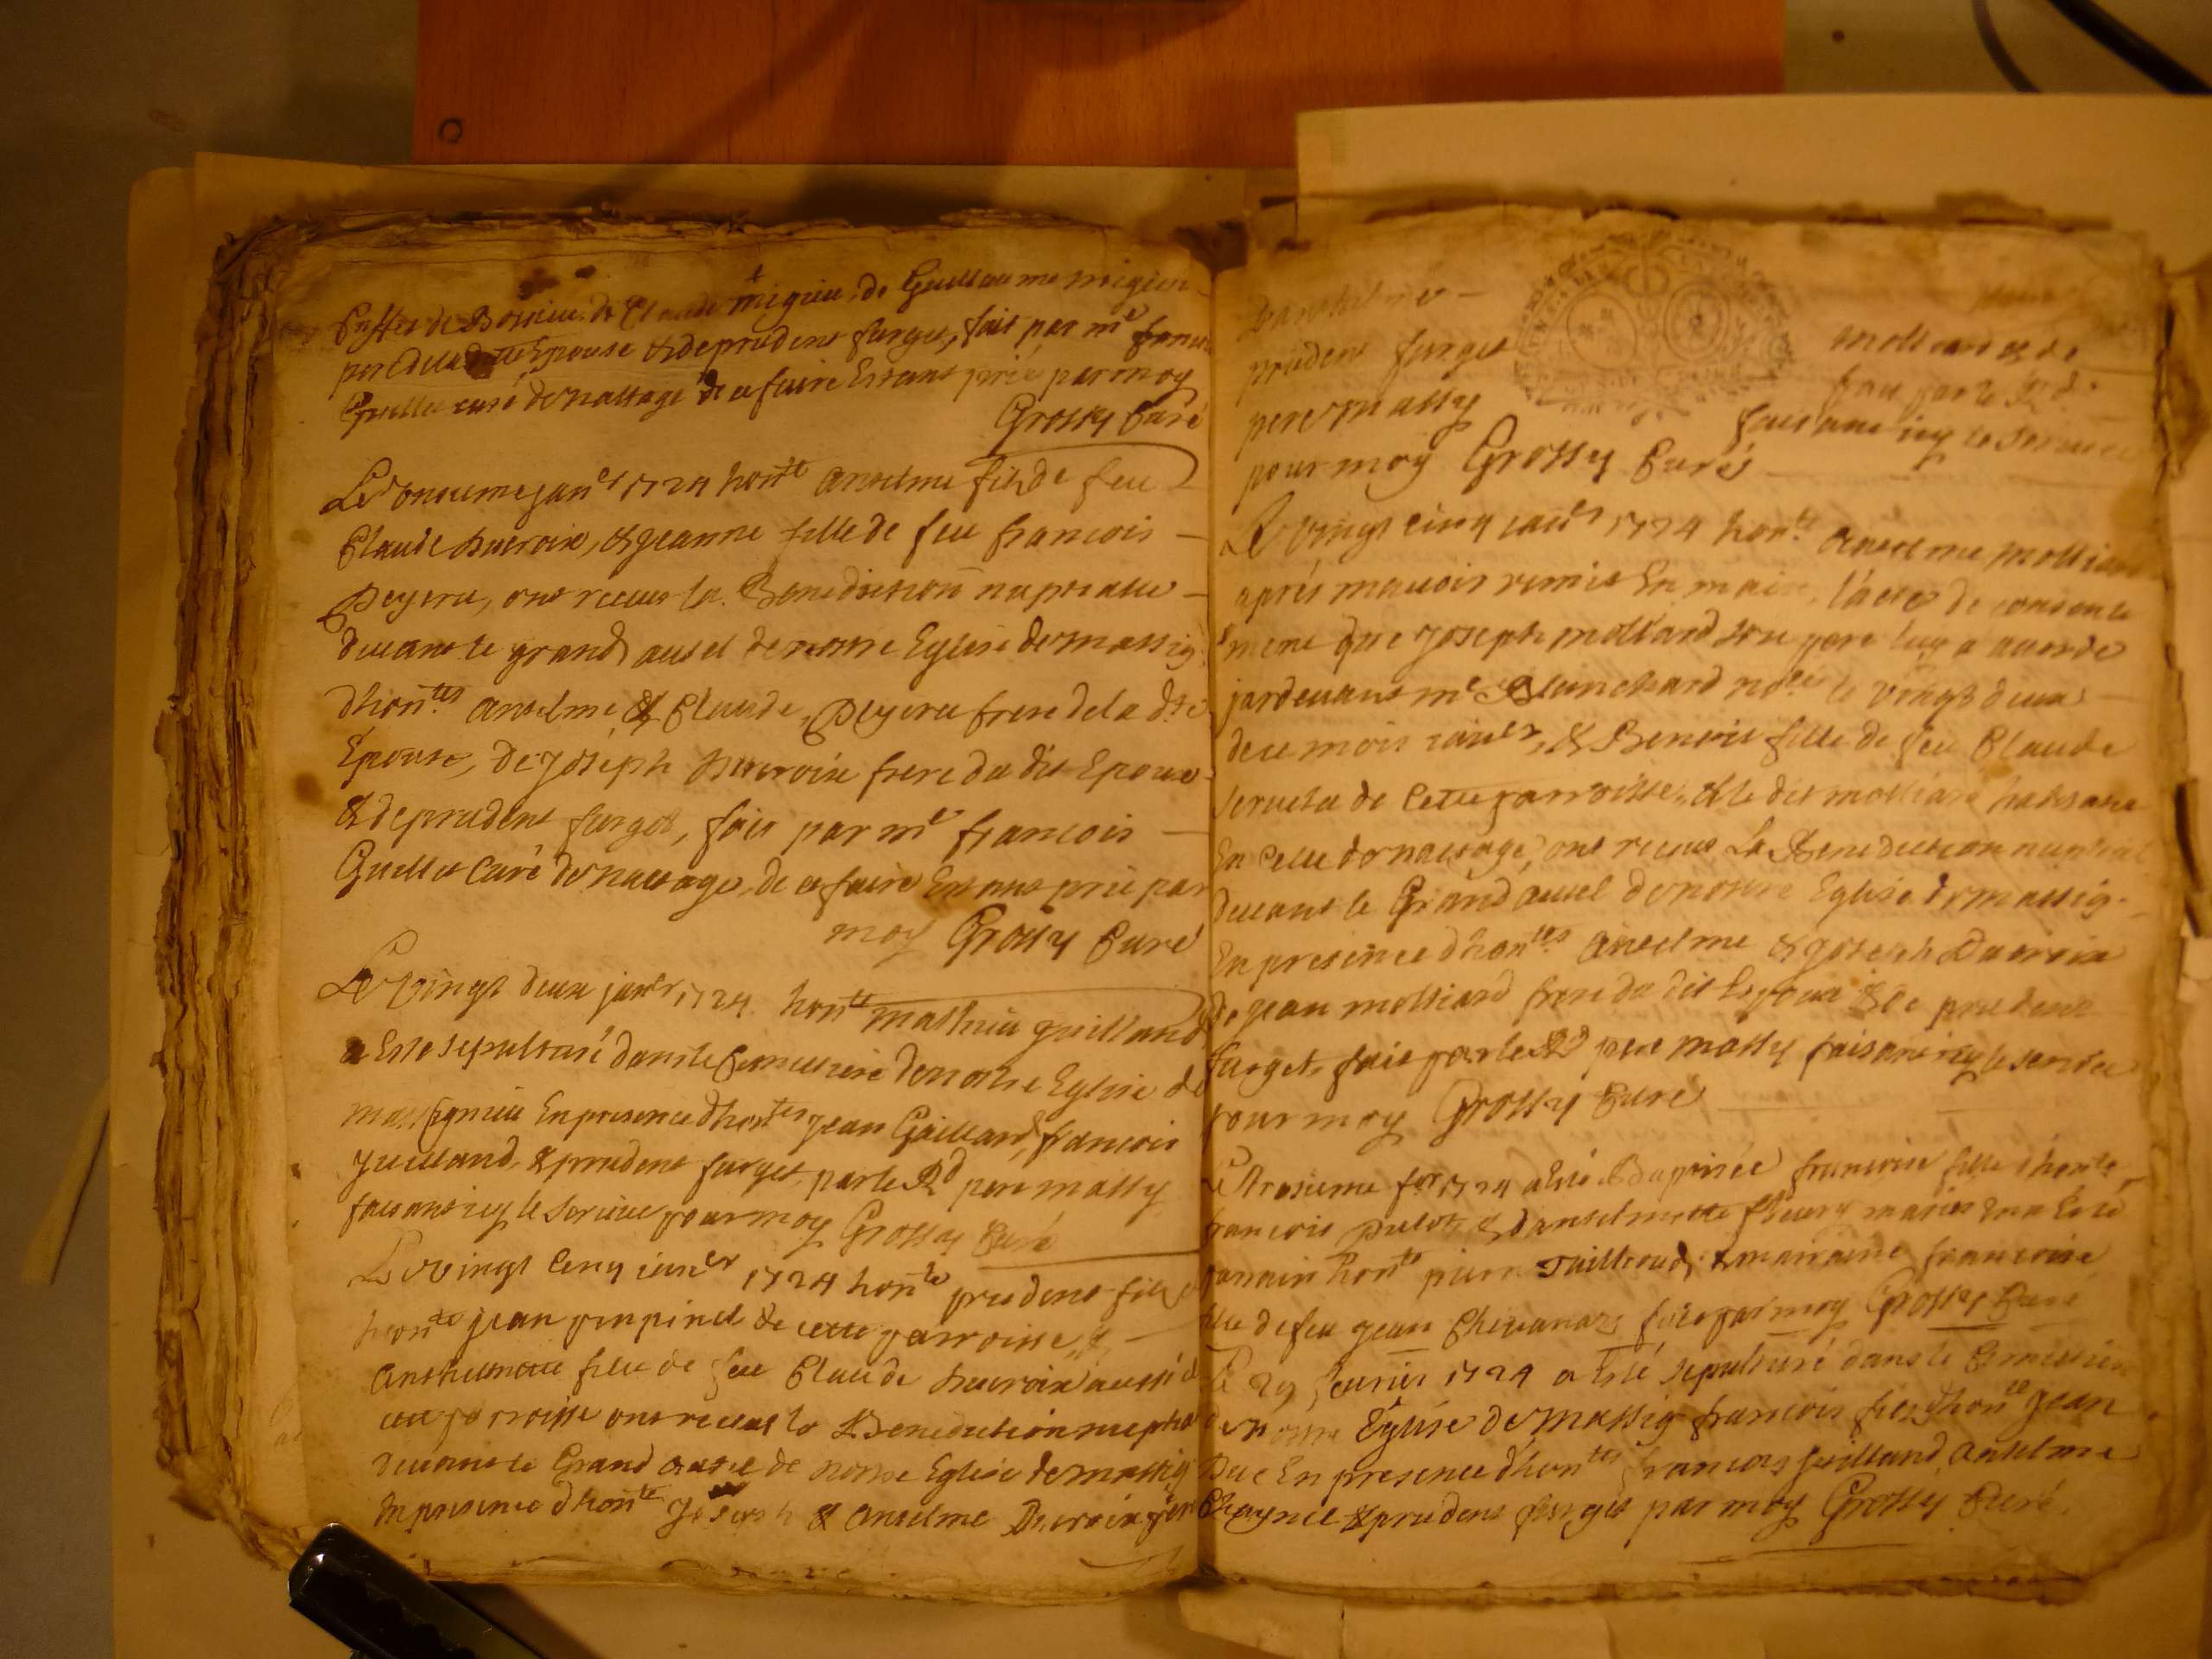 de Claude migieu, de Guillaume migieu
Epouse & de prudent furget, fait par m.e
Guillet curé de nattage de ce faire Estant prié par moy
Grossy Curé
Le onzieme janer 1724 honte anselme fils de feu
Claude ducroix, & jeanne fille de feu francois
Peyeru, ont receus la Benediction nuptialle
devant le grand autel de nostre Eglise de massig:
d'hontes anselme & Claude Peyeru frere de la dte
Epouse, de joseph ducroix frere du dit Epoux
& de prudent furget, fait par mr francois
Guillet Curé de nattage, de ce faire Estant prié par
moy Grossy Curé
Le vingt deux janer 1724 honte mathieu guilland
a Esté sepulturé dans le Cemettiere de nostre Eglise de
massignieu En presence d'hontes jean Gaillard, francois
juilland, & prudent furget, par le Rd pere massy
faisant icy le service pour moy Grossy Curé
Le vingt cinq janer 1724 honte prudent fils d
honte jean pinpinel de cette parroisse, &
anthelmette fille de feu Claude ducroix aussi d
cette parroisse ont receus la Benediction nuptial
devant le Grand autel de nostre Eglise de massig
En presence d'honte joseph & anselme Ducroix frer
prudent furget molliard & de
pere massy fait par le Rd
faisant icy le service
pour moy Grossy Curé
Le vingt cinq janer 1724 honte anselme molliard
aprés m'avoir remis En main, l'acte de consente
ment que joseph molliard son pere luy a accordé
pardevant me Blanchard nore le vingt deux
de ce mois janer, & Benoite fille de feu Claude
de cette parroisse, & le dit molliard habitant
En celle de nattage, ont receus La Benediction nuptial
devant le Grand autel de nostre Eglise de massig.
En presence d'hontes anselme & joseph Ducroix
de jean molliard frere du dit Espoux & de prudent
furget, fait par le Rd pere massy faisant icy le service
pour moy Grossy Curé
Le troisieme fer 1724 a Esté Baptisée francoise fille d'honte
francois & d'anselmette mariés
parrain honte pierre & marraine francoise
fille de feu jean fait par moy Grossy Curé
Le 29 feurier 1724 a Esté sepulturé dans le Cemettiere
de nostre Eglise de massig francois fils d'honte jean
Duc En presence d'hontes francois juilland, anselme
& prudent furget par moy Grossy Curé